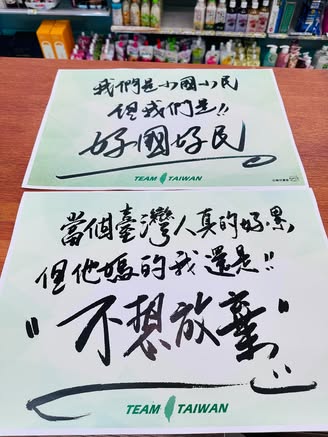 我們是小國小民
但我們是!!
好國好民
TEAM TAIWAN
當個臺灣人真的好累
但他媽的我還是!!
"不想放棄"
TEAM TAIWAN